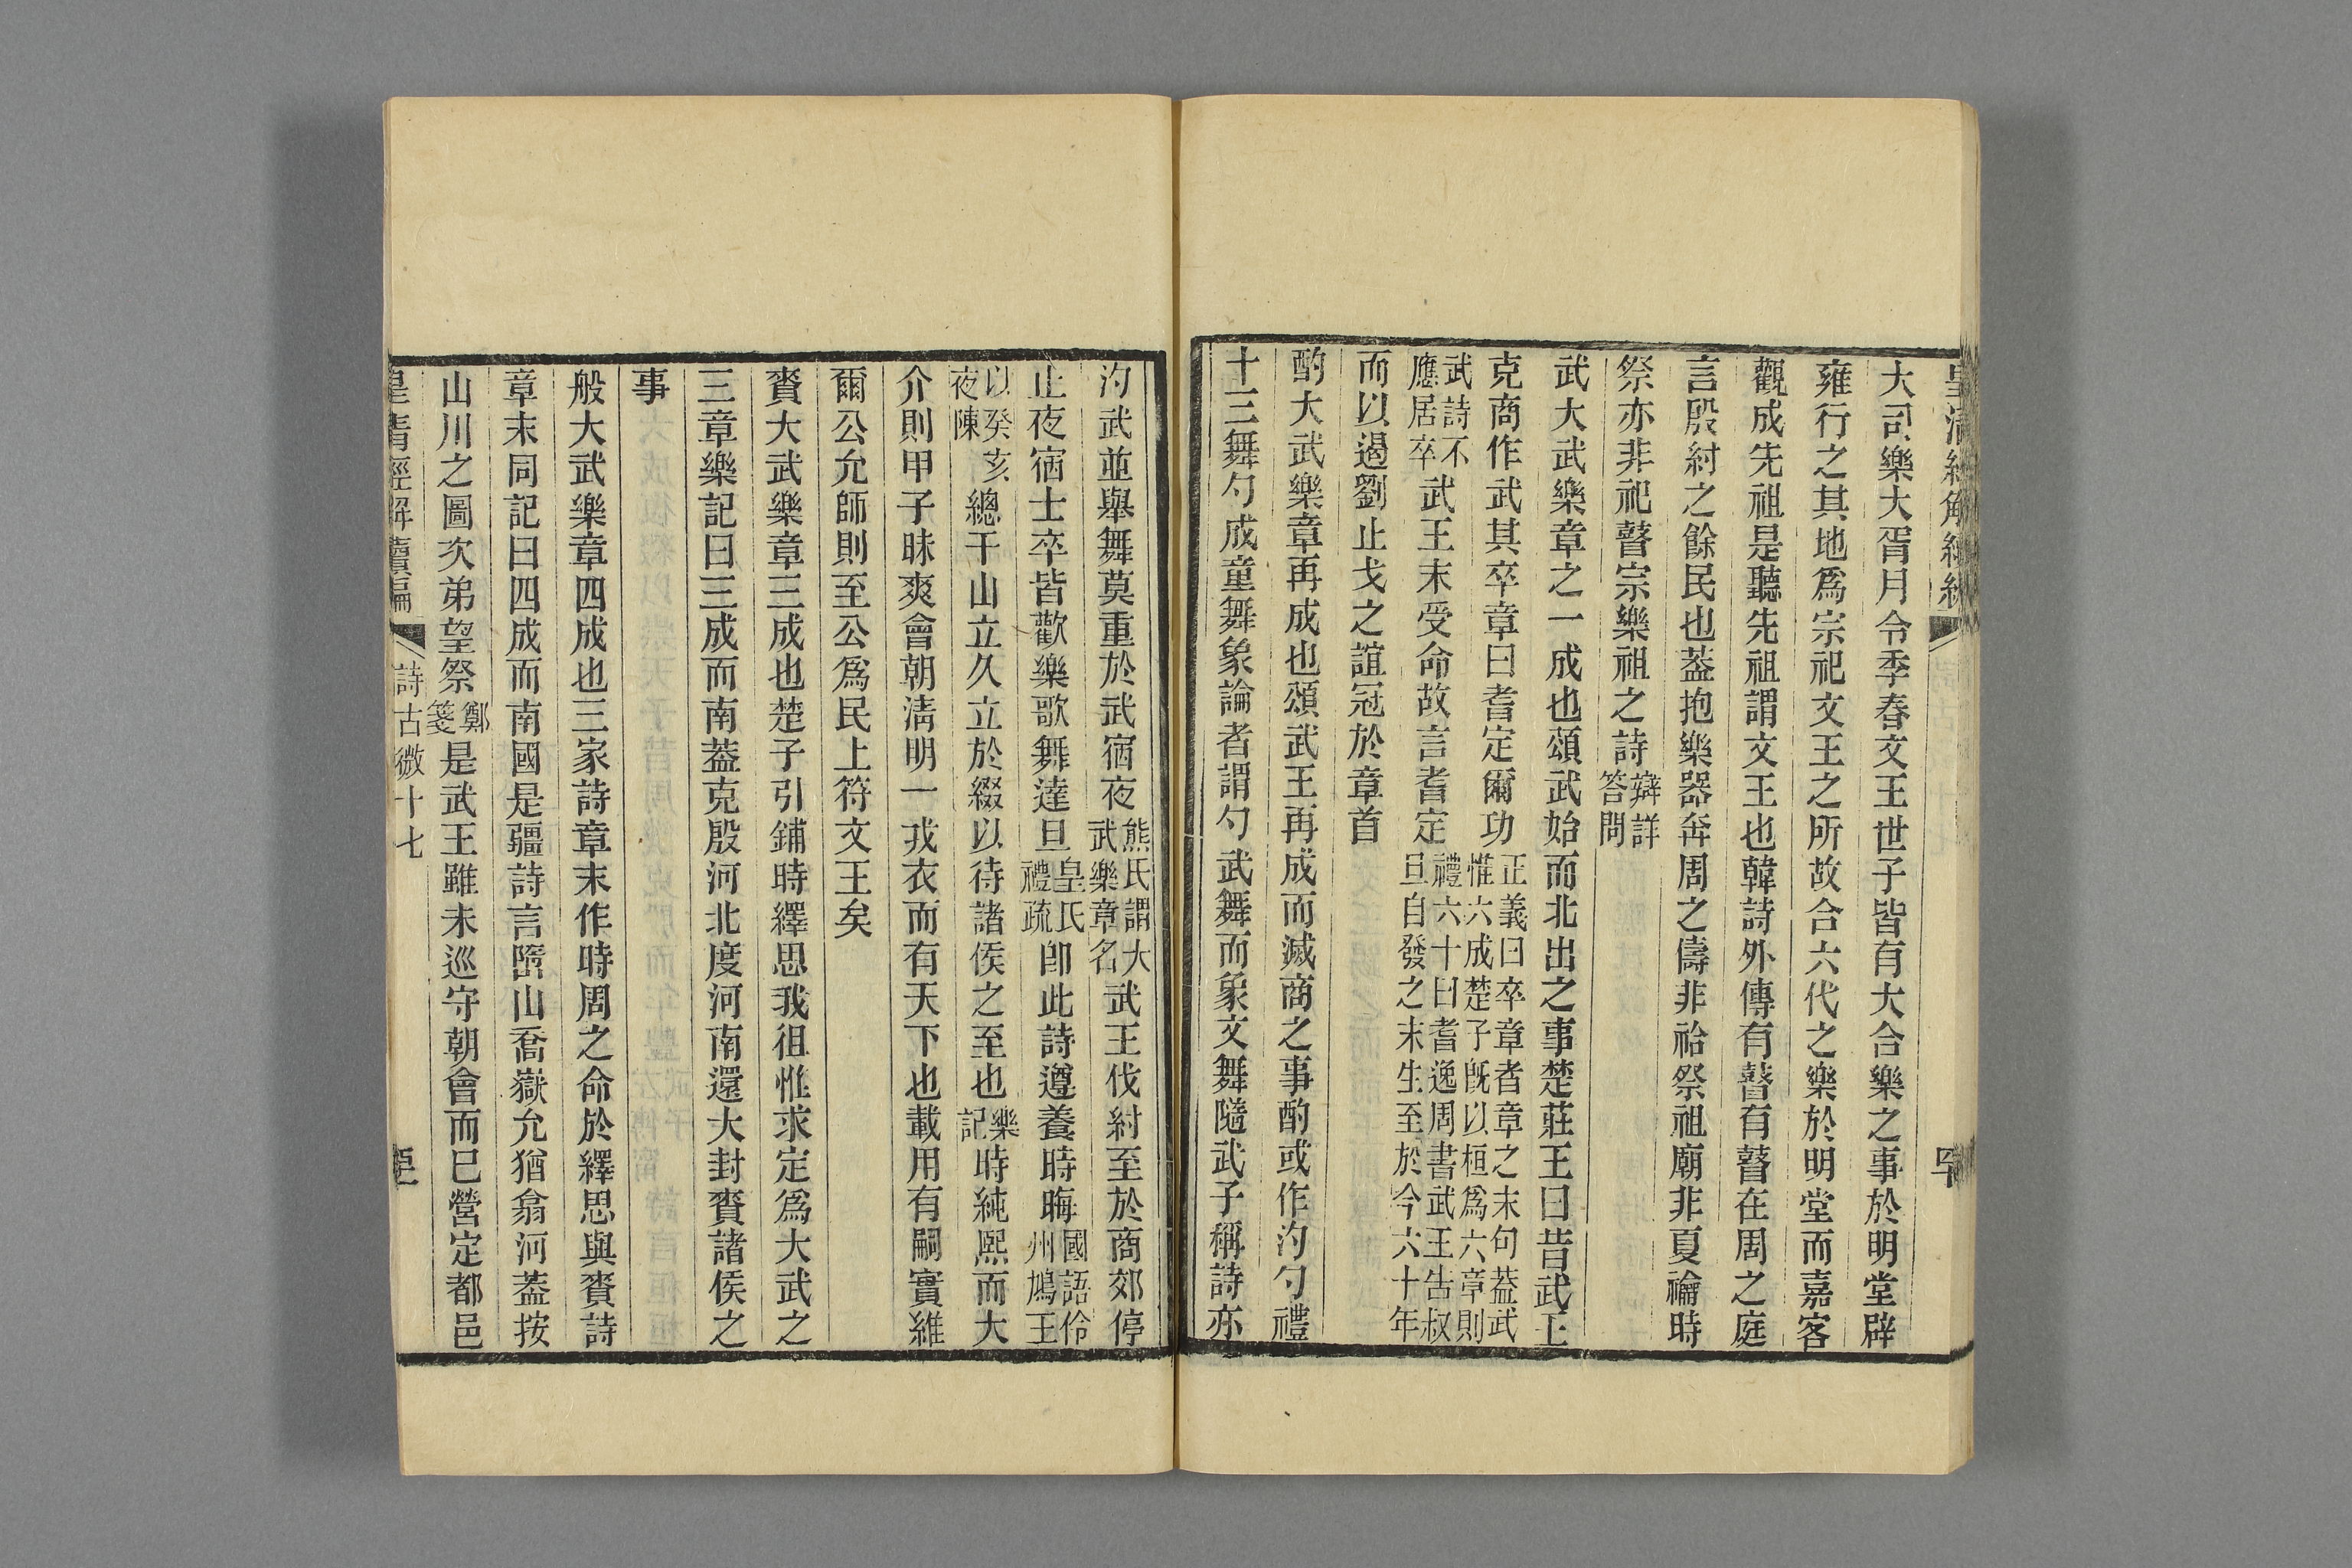 皇清經解續編
大司樂大胥月令季春文王世子皆有大合樂之事於明堂辟
雍行之其地爲宗祀文王之所故合六代之樂於明堂而嘉客
觀成先祖是聽先祖謂文王也韓詩外傳有瞽有瞽在周之庭
言殷紂之餘民也葢抱樂器奔周之儔非祫祭祖廟非夏禴時
祭亦非祀瞽宗樂祖之詩辯詳答問
武大武樂章之一成也頌武始而北出之事楚莊王曰昔武王
克商作武其卒章曰耆定爾功正義曰卒章者章之末句葢武惟六成楚子旣以桓爲六章則
武詩不應居卒武王末受命故言耆定禮六十曰耆逸周書武王告叔旦自發之未生至於今六十年
而以遏劉止戈之誼冠於章首
酌大武樂章再成也頌武王再成而滅商之事酌或作汋勺禮
十三舞勺成童舞象論者謂勺武舞而象文舞隨武子稱詩亦
汋武並舉舞莫重於武宿夜熊氏謂大武樂章名武王伐紂至於商郊停
止夜宿士卒皆歡樂歌舞達旦皇氏禮疏卽此詩遵養時晦國語伶州鳩王
以癸亥夜陳總干山立久立於綴以待諸侯之至也樂記時純熙而大
介則甲子昧爽會朝淸明一戎衣而有天下也載用有嗣實維
爾公允師則至公爲民上符文王矣
賚大武樂章三成也楚子引鋪時繹思我徂惟求定爲大武之
三章樂記曰三成而南葢克殷河北度河南還大封賚諸侯之
事
般大武樂章四成也三家詩章末作時周之命於繹思與賚詩
章末同記曰四成而南國是疆詩言嶞山喬嶽允猶翕河葢按
山川之圖次弟望祭鄭箋是武王雖未巡守朝會而已營定都邑
皇清經解續編
詩古微十七